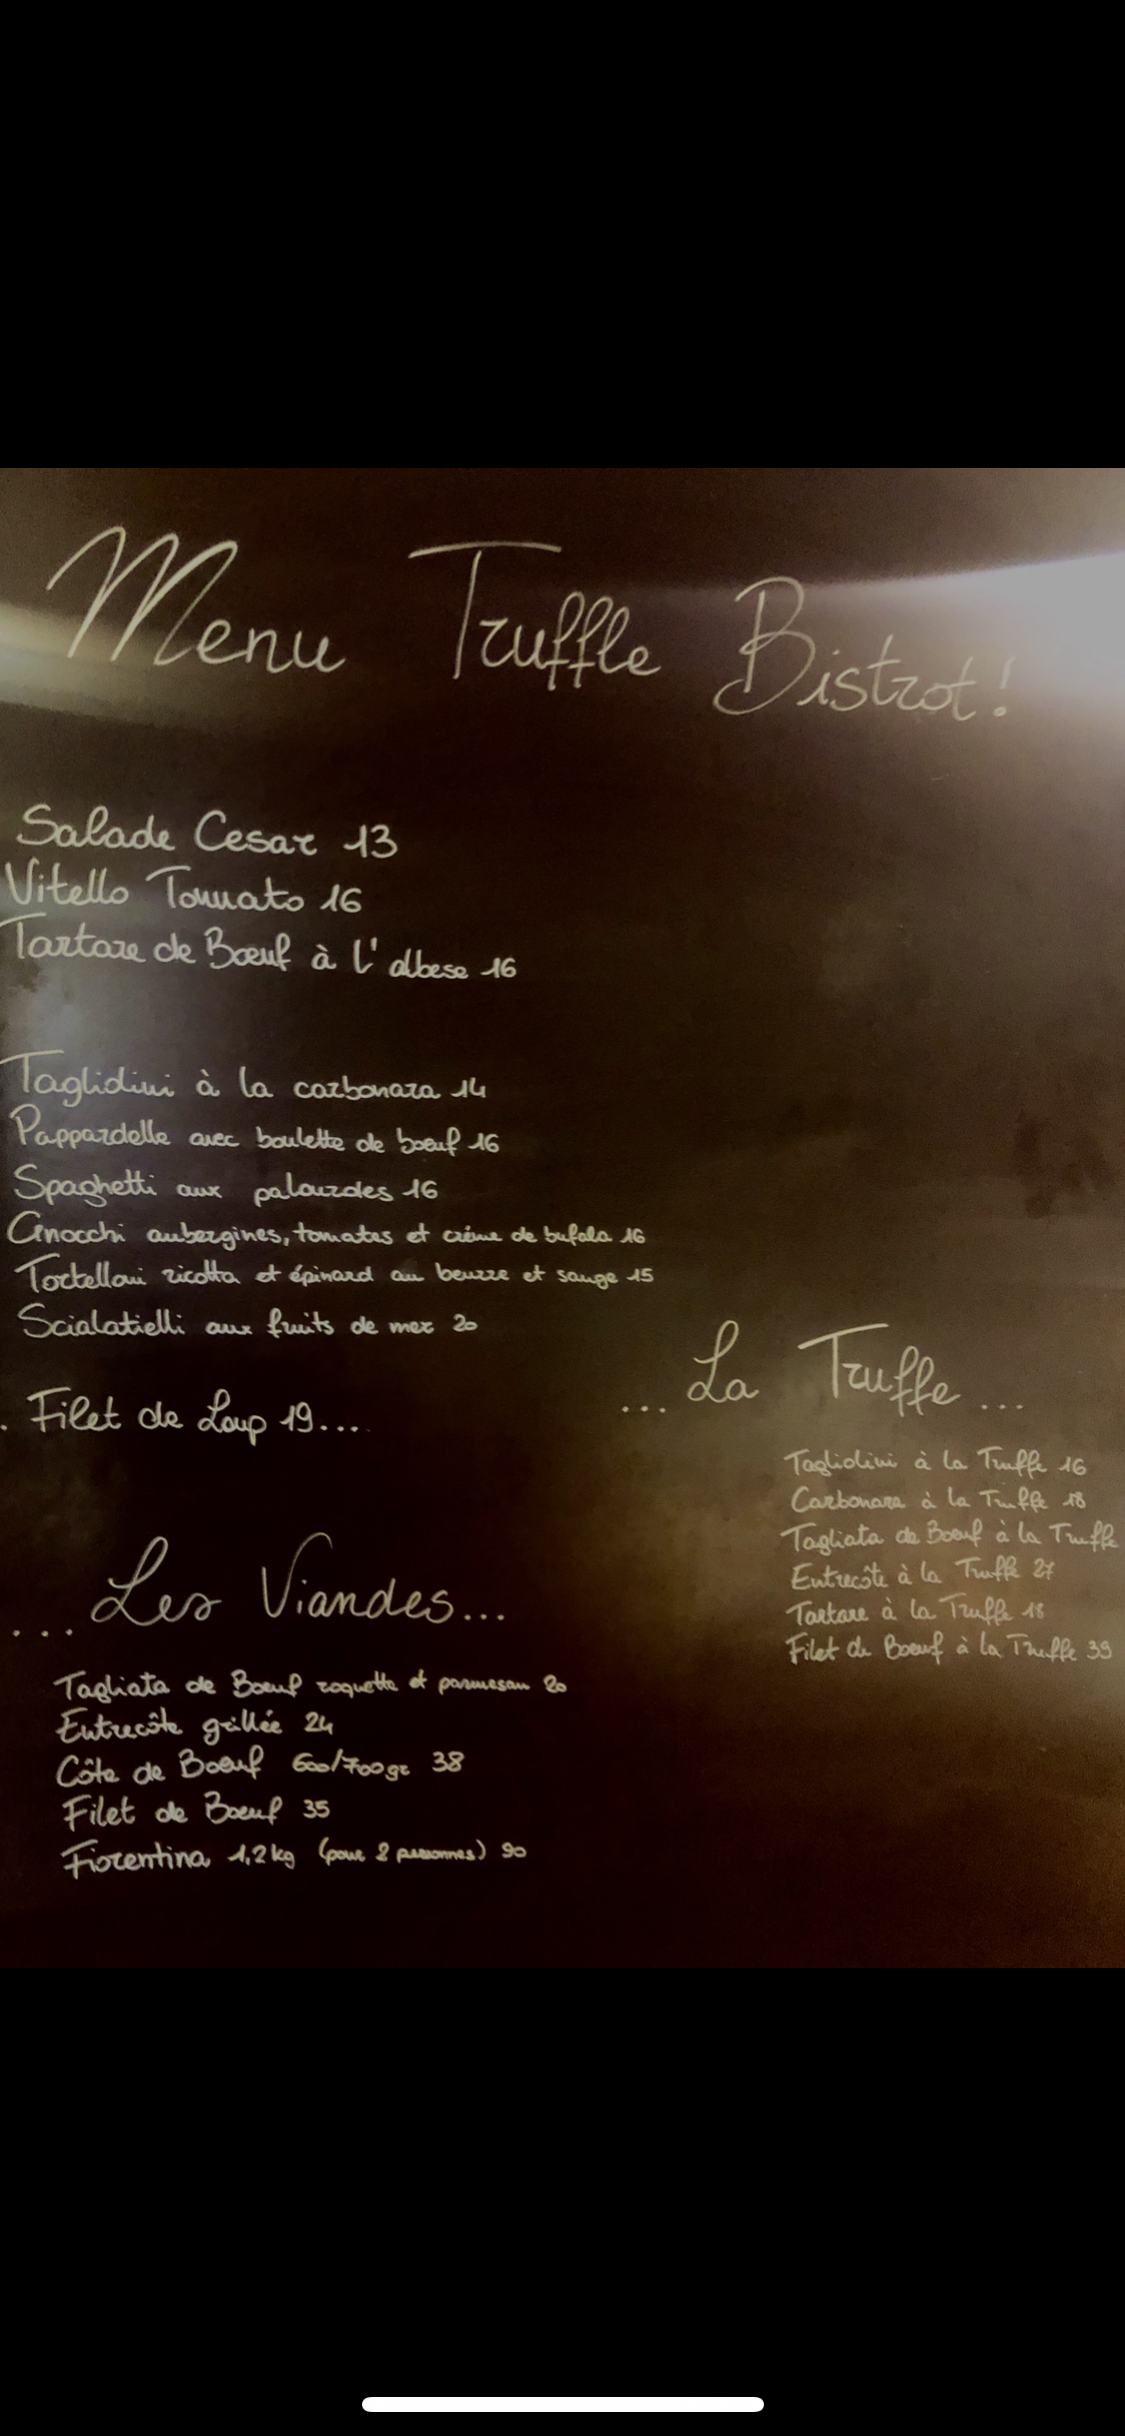 Menu Truffle Bistrot!
Salade Cesar 13
Vitello Tonnato 16
Tartare de Bœuf à l'albese 16
Tagliolini à la carbonara 14
Pappardelle avec boulette de bœuf 16
Spaghetti aux palourdes 16
Gnocchi aubergines, tomates et crème de bufala 16
Tortelloni ricotta et épinard au beurre et sauge 15
Scialatielli aux fruits de mer 20
. Filet de Loup 19...
... Les Viandes...
Tagliata de Bœuf roquette et parmesan 20
Entrecôte grillée 24
Côte de Bœuf 600/700gr 38
Filet de Boeuf 35
Fiorentina 1,2kg (pour 2 personnes) 90
... La Truffe ...
Tagliolini à la Truffe 16
Carbonara à la Truffe 18
Tagliata de Bœuf à la Truffe
Entrecôte à la Truffe 27
Tartare à la Truffe 18
Filet de Boeuf à la Truffe 39